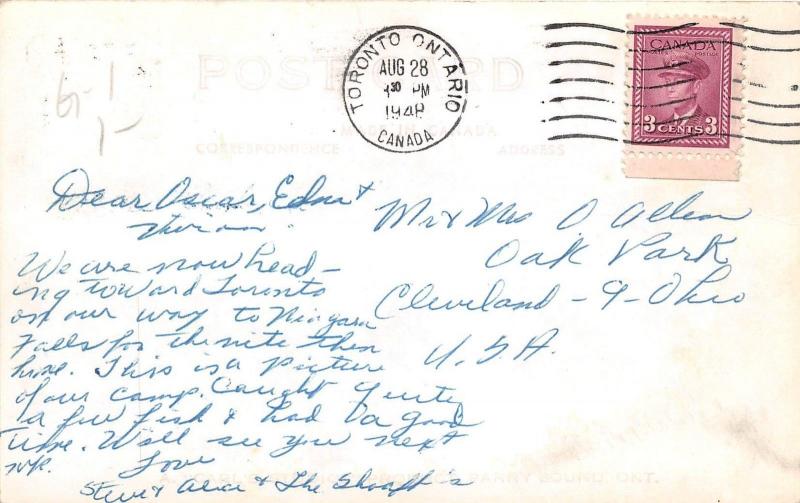 TORONTO ONTARIO
AUG 28
PM
1948
CANADA
CANADA
POSTAGE
3 CENTS 3
POST CARD
MADE IN CANADA
CORRESPONDENCE
ADDRESS
Dear Oscar, Edna &
We are now head-
ing toward Toronto
on our way to Niagara
Falls for the nite then
home. This is a picture
of our camp. Caught quite
a few fish & had a good
time. Will see you next
wk.
Love
Steve & Alice & The
Mr & Mrs O Allen
Oak Park
Cleveland - 9 - Ohio
U.S.A.
PARRY SOUND, ONT.